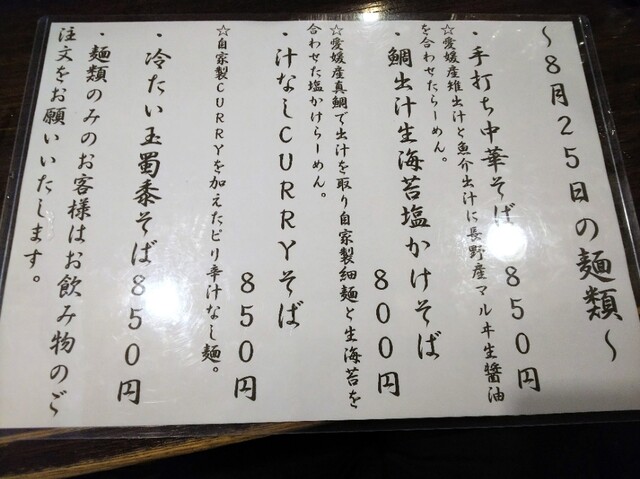 ～８月２５日の麺類～
・手打ち中華そば８５０円
☆愛媛産雉出汁と魚介出汁に長野産マルヰ生醬油
を合わせたらーめん。
・鯛出汁生海苔塩かけそば
８００円
☆愛媛産真鯛で出汁を取り自家製細麺と生海苔を
合わせた塩かけらーめん。
・汁なしＣＵＲＲＹそば
８５０円
☆自家製ＣＵＲＲＹを加えたピリ辛汁なし麺。
・冷たい玉蜀黍そば８５０円
・麺類のみのお客様はお飲み物のご
注文をお願いいたします。